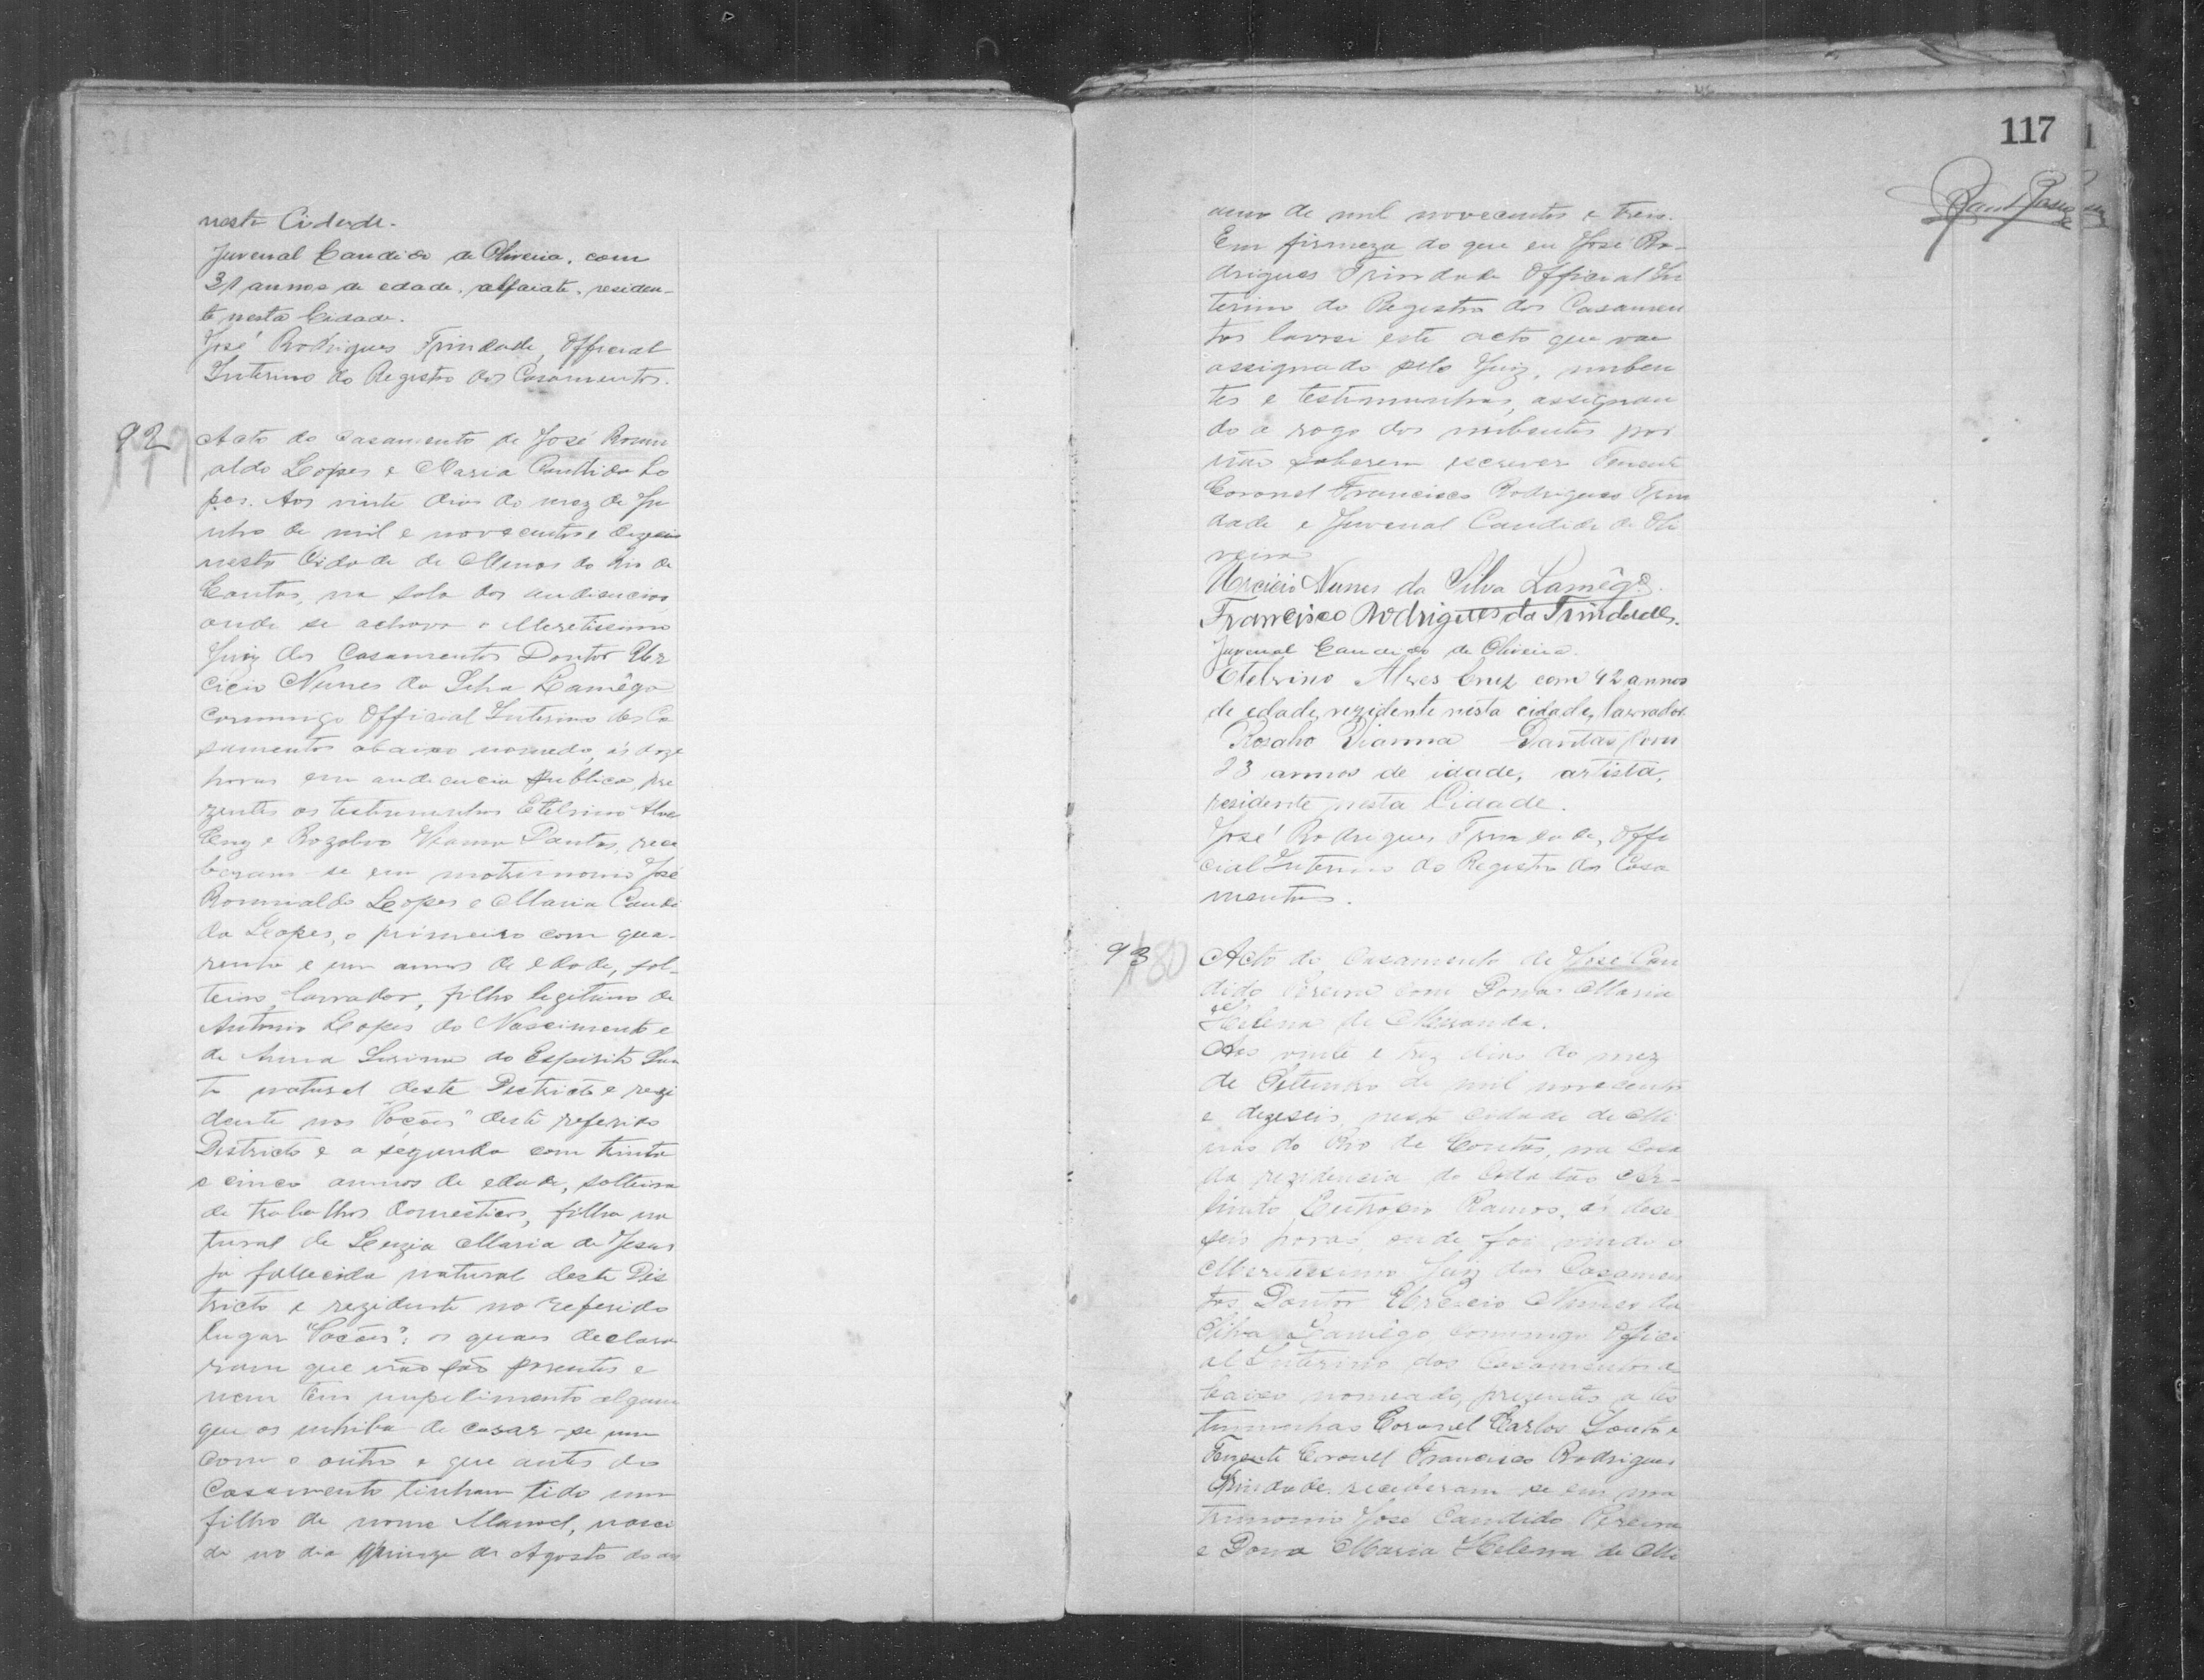 nesta Cidade.
Juvenal Candido de Oliveira, com
31 annos de edade, alfaiate, residen-
te nesta Cidade.
José Rodrigues Trindade, Official
Interino do Registro dos Casamentos.
92
Acto do casamento de José Romu
aldo Lopes e Maria Candida Lo
pes. Aos vinte dias do mez de Ju
nho de mil e novecentos e dezeseis
nesta Cidade de Minas do Rio de
Contas, na sala das audiencias
onde se achava o Meretissimo
Juiz dos Casamentos Doutor Urci
cicio Nunes da Silva Lamêgo
commigo Official Interino dos Ca
samentos abaixo nomeado, ás doze
horas em audiencia publica, pre
zentes as testemunhas Etelvino Alves
Cruz e Rozalvo Vianna Dantas, rece
beram-se em matrimonio José
Romualdo Lopes e Maria Candi
da Lopes, o primeiro com qua-
renta e um annos de edade, sol-
teiro, lavrador, filho legitimo de
Antonio Lopes do Nascimento e
de Anna do Espirito San
to natural deste Districto e rezi
dente nos "Poções" deste referido
Districto e a segunda com trinta
e cinco annos de edade, solteira
de trabalhos domesticos, filha na
tural de Luzia Maria de Jesus
já fallecida natural deste Dis
tricto e rezidente no referido
lugar "Poções"; os quaes declara
ram que não são parentes e
nem tem impedimento algum
que os inhiba de casar-se um
com o outro e que antes do
Casamento tinham tido um
filho de nome Manoel, nasci
do no dia quinze de Agosto do an
117
anno de mil novecentos e trez.
Em firmeza do que eu José Ro-
drigues Trindade Official In
terino do Registro dos Casamen
tos lavrei este acto que vae
assignado pelo Juiz, nuben
tes e testemunhas, assignan
do a rogo dos nubentes por
não saberem escrever Tenente
Coronel Francisco Rodrigues Trin
dade e Juvenal Candido de Oli
veira
Urcicio Nunes da Silva Lamêgo.
Francisco Rodrigues da Trindade.
Juvenal Candido de Oliveira.
Etelvino Alves Cruz com 42 annos
de edade, rezidente nesta cidade, lavrador
Rosalvo Vianna Dantas, com
23 annos de idade, artista,
residente nesta Cidade.
José Rodrigues Trindade, Offi
cial Interino do Registro dos Casa
mentos.
93
180
Acto do Casamento de José Can
dido Pereira com Dona Maria
Helena de Miranda.
Aos vinte e trez dias do mez
de Setembro de mil novecentos
e dezeseis, nesta cidade de Mi
nas do Rio de Contas, na Casa
da rezidencia do Cidadão
Eutropio Ramos, ás deze
seis horas, onde foi vindo o
Meretissimo Juiz dos Casamen
tos Doutor Urcicio Nunes da
Silva Lamêgo commigo Offici
al Interino dos Casamentos a
baixo nomeado, prezentes as tes
temunhas Coronel Carlos Souto e
Tenente Coronel Francisco Rodrigues
Trindade, receberam se em ma
trimonio José Candido Pereira
e Dona Maria Helena de Mi